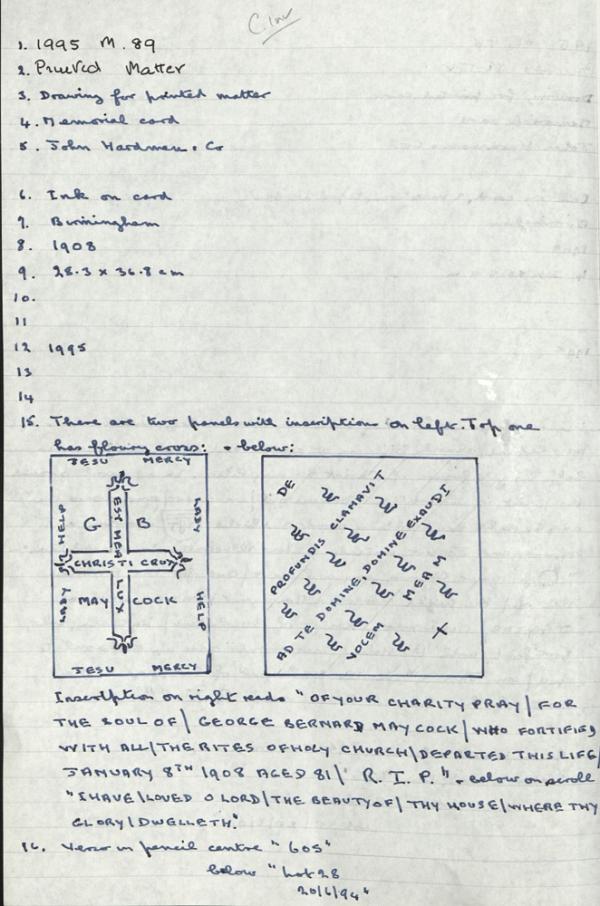 C. Inv
1. 1995 M. 89
2. Printed Matter
3. Drawing for printed matter
4. Memorial card
5. John Hardman & Co
6. Ink on card
7. Birmingham
8. 1908
9. 28.3 x 36.8 cm
10.
11
12 1995
13
14
15. There are two panels with inscriptions on left. Top one
has flowing cross: & below:
JESU MERCY
HELP
LADY
G B
EST MEA
CHRISTI CRUX
LUX
MAY COCK
LADY
HELP
JESU MERCY
DE
PROFUNDIS CLAMAVIT
AD TE DOMINE, DOMINE EXAUDI
VOCEM MEAM
Inscription on right reads "OF YOUR CHARITY PRAY | FOR
THE SOUL OF | GEORGE BERNARD MAYCOCK | WHO FORTIFIED
WITH ALL | THE RITES OF HOLY CHURCH | DEPARTED THIS LIFE |
JANUARY 8TH 1908 AGED 81 | R. I. P." & below on scroll
"I HAVE | LOVED O LORD | THE BEAUTY OF | THY HOUSE | WHERE THY
GLORY | DWELLETH."
16. Verso in pencil centre "605"
below "Lot 28
20/6/94"